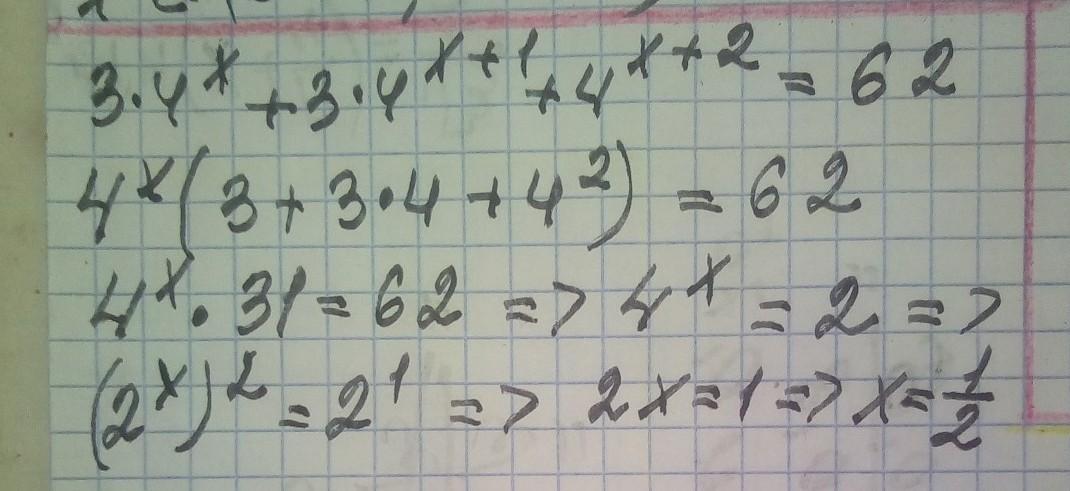 3·4^x + 3·4^{x+1} + 4^{x+2} = 62
4^x(3 + 3·4 + 4^2) = 62
4^x · 31 = 62 => 4^x = 2 =>
(2^x)^2 = 2^1 => 2x = 1 => x = 1/2